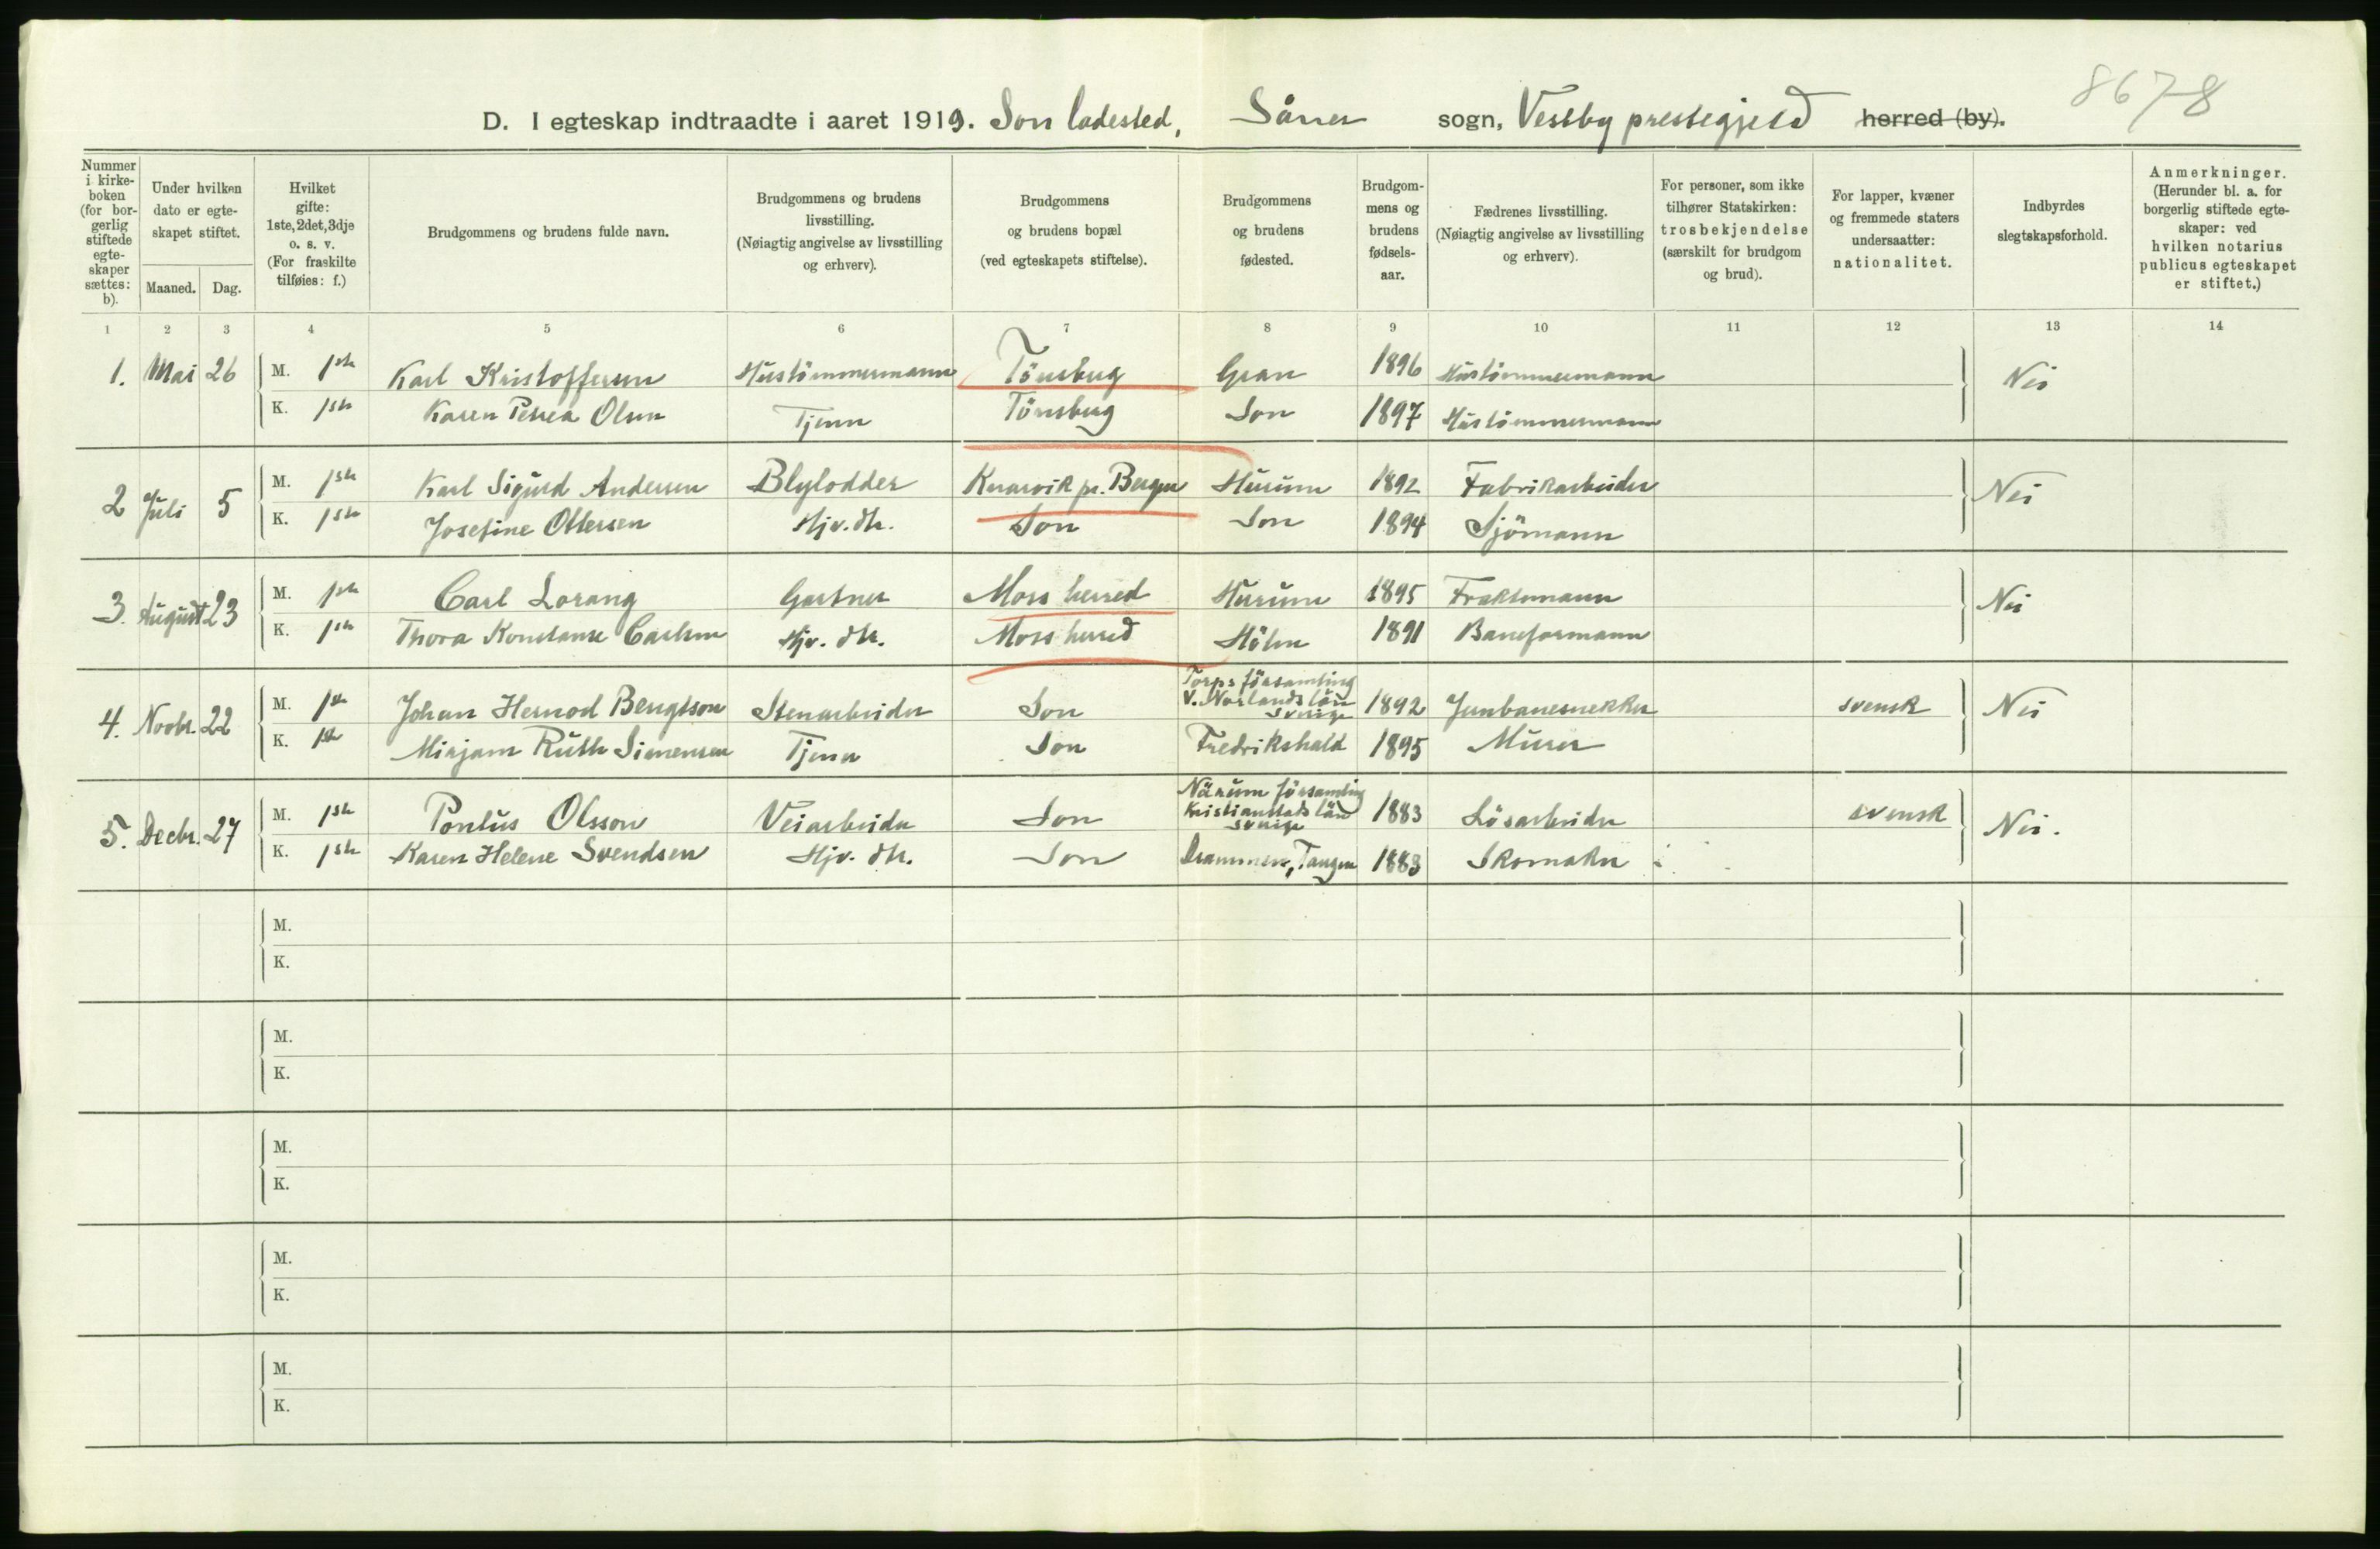 8678
D. I egteskap indtraadte i aaret 1919. Son ladested, Såner sogn, Vestby prestegjeld herred (by).
Nummer i kirke-boken (for bor-gerlig stiftede egte-skaper sættes: b).
Under hvilken dato er egte-skapet stiftet.
Maaned. Dag.
Hvilket gifte: 1ste, 2det, 3dje o. s. v. (For fraskilte tilføies: f.)
Brudgommens og brudens fulde navn.
Brudgommens og brudens livsstilling. (Nøiagtig angivelse av livsstilling og erhverv).
Brudgommens og brudens bopæl (ved egteskapets stiftelse).
Brudgommens og brudens fødested.
Brudgom-mens og brudens fødsels-aar.
Fædrenes livsstilling. (Nøiagtig angivelse av livsstilling og erhverv).
For personer, som ikke tilhører Statskirken: trosbekjendelse (særskilt for brudgom og brud).
For lapper, kvæner og fremmede staters undersaatter: nationalitet.
Indbyrdes slegtskapsforhold.
Anmerkninger. (Herunder bl. a. for borgerlig stiftede egte-skaper: ved hvilken notarius publicus egteskapet er stiftet.)
1 2 3 4 5 6 7 8 9 10 11 12 13 14
1. Mai 26 M. 1ste Karl Kristoffersen Hustømmermann Tönsberg Gran 1896 Hustömmermann Nei
K. 1ste Karen Petrea Olsen Tjener Tönsberg Son 1897 Hustömmermann
2 Juli 5 M. 1ste Karl Sigurd Andersen Blylodder Knarvik pr. Bergen Hurum 1892 Fabrikarbeider Nei
K. 1ste Josefine Ottersen Hjv. dtr. Son Son 1894 Sjömann
3. August 23 M. 1ste Carl Lorang Gartner Moss herred Hurum 1895 Fraktemann Nei
K. 1ste Thora Konstanse Carlsen Hjv. dtr. Moss herred Hölen 1891 Baneformann
4. Novbr. 22 M. 1ste Johan Hernod Bengtson Stenarbeider Son Torps församling V. Norlands län Sverige 1892 Jernbanesnekker svensk Nei
K. 1ste Mirjam Ruth Simensen Tjener Son Fredrikshald 1895 Murer
5. Decbr. 27 M. 1ste Pontus Olsson Veiarbeider Son Närum församling Kristianstads län Sverige 1883 Lösarbeider svensk Nei.
K. 1ste Karen Helene Svendsen Hjv. dtr. Son Drammen, Tangen 1883 Skomaker
M.
K.
M.
K.
M.
K.
M.
K.
M.
K.